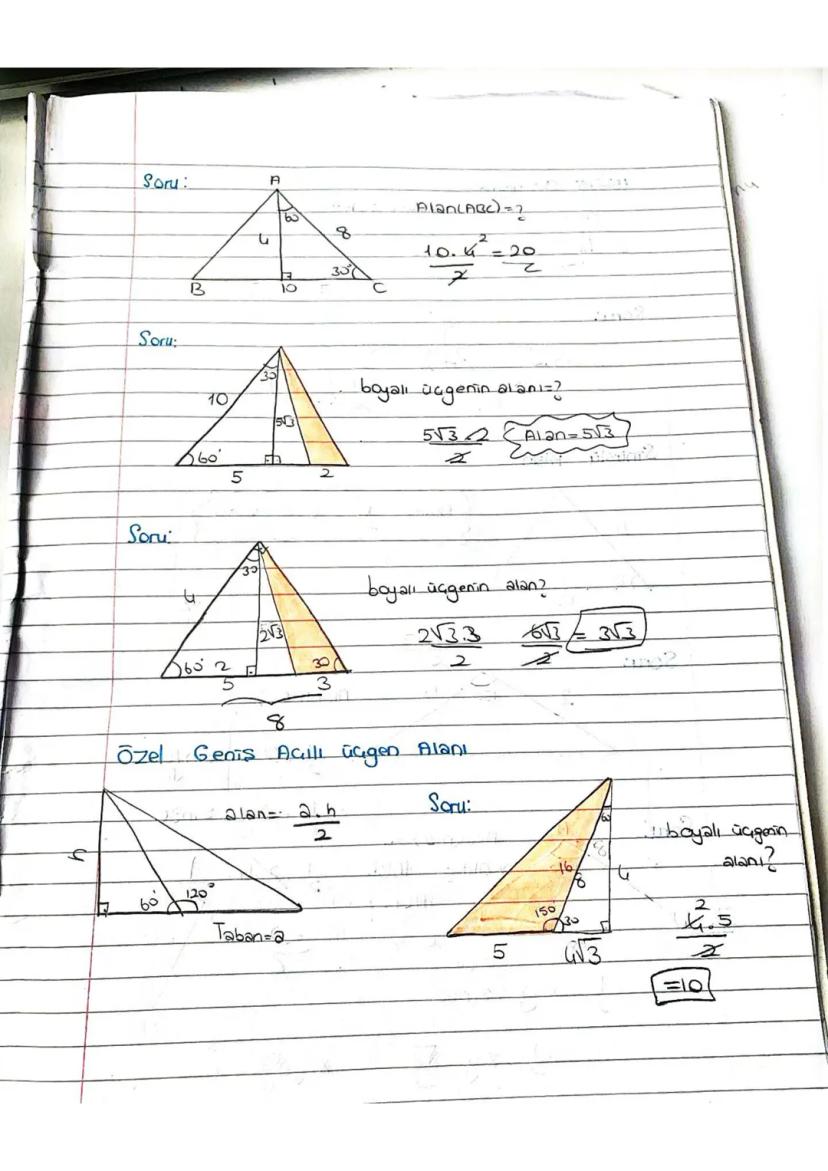 Soru:
A
60
4
8
30°
B
10
C
Alan(ABC)=?
10.4 2
2
=20
Soru:
30
10
5√3
60°
5
2
boyalı üçgenin alanı=?
5√3.2
2
Alan=5√3
Soru:
30
4
2√3
60° 2
30
5
3
8
boyalı üçgenin alan?
2√3.3
2
6√3
2
= 3√3
Özel Geniş Açılı üçgen Alanı
h
60°
120°
Taban=a
alan= a.h
2
Soru:
60
16
8
4
150
30
5
4√3
boyalı üçgenin
alanı?
2
4.5
2
=10